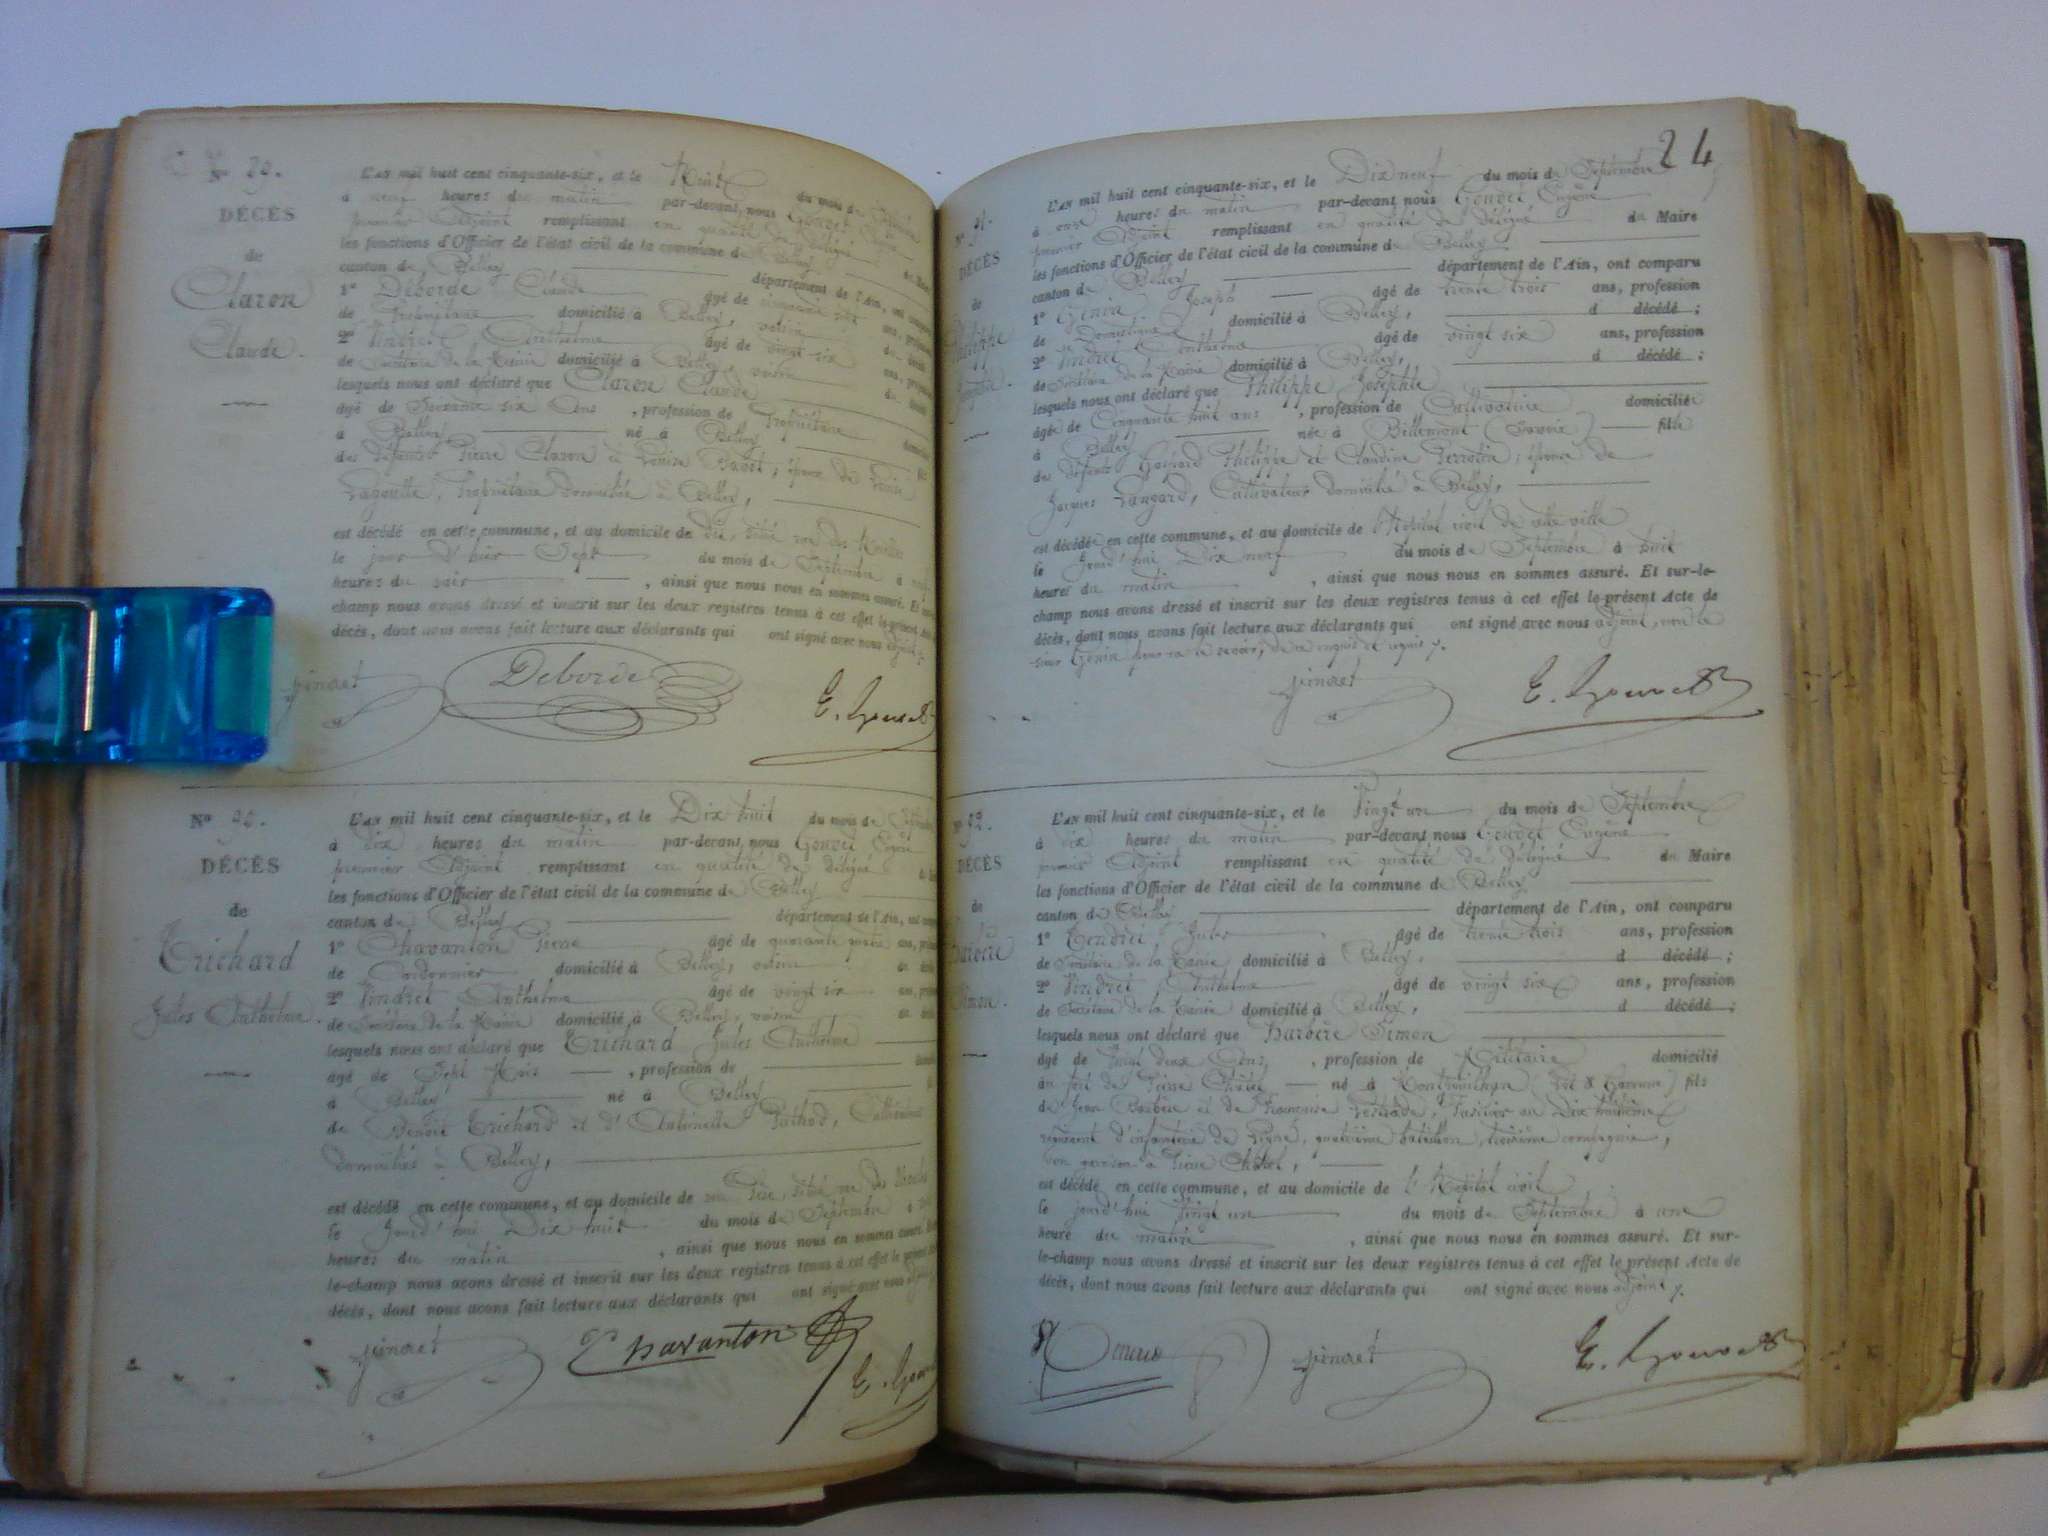 Nº 89.
DÉCÈS
de
Claron
Claude.
L'AN mil huit cent cinquante-six, et le huit du mois de
à neuf heures du matin par-devant nous Gouvet
premier Adjoint remplissant en qualité de délégué
les fonctions d'Officier de l'état civil de la commune de Belley
canton de Belley département de l'Ain, ont comparu
1º Deborde Claude âgé de cinquante ans, profession
de Propriétaire domicilié à Belley, voisin
2º Vindret Anthelme âgé de vingt six ans,
de Secrétaire de la Mairie domicilié à Belley, voisin
lesquels nous ont déclaré que Claron Claude
âgé de Soixante six Ans, profession de Propriétaire
à Belley né à Belley
de défunts Pierre Claron et Louise ; époux de Louise
Lagoutte, Propriétaire domiciliée à Belley,
est décédé en cette commune, et au domicile de situé rue des
le jour d'hier Sept du mois de Septembre à
heures du soir, ainsi que nous nous en sommes assuré. Et
champ nous avons dressé et inscrit sur les deux registres tenus à cet effet le présent
décès, dont nous avons fait lecture aux déclarants qui ont signé avec nous adjoint
Vindret Deborde E. Gouvet
Nº 90.
DÉCÈS
de
Trichard
Jules Anthelme.
L'AN mil huit cent cinquante-six, et le Dix huit du mois de Septembre
à dix heures du matin par-devant nous Gouvet Eugène
premier Adjoint remplissant en qualité de délégué
les fonctions d'Officier de l'état civil de la commune de Belley
canton de Belley département de l'Ain, ont
1º Chavanton Pierre âgé de quarante ans,
de Cordonnier domicilié à Belley, voisin
2º Vindret Anthelme âgé de vingt six ans,
de Secrétaire de la Mairie domicilié à Belley, voisin
lesquels nous ont déclaré que Trichard Jules Anthelme
âgé de Sept Mois, profession de
à Belley né à Belley
de Benoît Trichard et d'Antoinette
domiciliés à Belley,
est décédé en cette commune, et au domicile de son Père, situé rue des
le jourd'hui Dix huit du mois de Septembre à
heures du matin, ainsi que nous nous en sommes assuré.
le-champ nous avons dressé et inscrit sur les deux registres tenus à cet effet le présent
décès, dont nous avons fait lecture aux déclarants qui ont signé avec nous
Vindret Chavanton E. Gouvet
24
Nº 91.
DÉCÈS
de
Philippe
Josephte.
L'AN mil huit cent cinquante-six, et le Dix neuf du mois de Septembre
à onze heures du matin par-devant nous Gouvet Eugène
premier Adjoint remplissant en qualité de délégué du Maire
les fonctions d'Officier de l'état civil de la commune de Belley,
canton de Belley département de l'Ain, ont comparu
1º Génin Joseph âgé de trente trois ans, profession
de Domestique domicilié à Belley, d décédé ;
2º Vindret Anthelme âgé de vingt six ans, profession
de Secrétaire de la Mairie domicilié à Belley, d décédé ;
lesquels nous ont déclaré que Philippe Josephte
âgée de Cinquante huit ans, profession de Cultivatrice domiciliée
à Belley née à Billemont (Savoie) fille
des défunts Philippe et Claudine ; épouse de
Jacques Cultivateur domicilié à Belley,
est décédée en cette commune, et au domicile de l'Hôpital civil de cette ville
le jourd'hui Dix neuf du mois de Septembre à huit
heures du matin, ainsi que nous nous en sommes assuré. Et sur-le-
champ nous avons dressé et inscrit sur les deux registres tenus à cet effet le présent Acte de
décès, dont nous avons fait lecture aux déclarants qui ont signé avec nous adjoint, non le
sieur Génin pour ne le savoir, de ce requis
Vindret E. Gouvet
Nº 92.
DÉCÈS
de
Barbère
Simon.
L'AN mil huit cent cinquante-six, et le Vingt un du mois de Septembre
à dix heures du matin par-devant nous Gouvet Eugène
premier Adjoint remplissant en qualité de délégué du Maire
les fonctions d'Officier de l'état civil de la commune de Belley
canton de Belley département de l'Ain, ont comparu
1º Tendret Jules âgé de trente trois ans, profession
de Secrétaire de la Mairie domicilié à Belley, d décédé ;
2º Vindret Anthelme âgé de vingt six ans, profession
de Secrétaire de la Mairie domicilié à Belley, d décédé ;
lesquels nous ont déclaré que Barbère Simon
âgé de Vingt deux Ans, profession de Militaire domicilié
au fort de Pierre Châtel né à (Tot & Garonne) fils
de Jean Barbère et de Françoise Fusilier au Dix huitième
régiment d'infanterie de Ligne, quatrième bataillon, troisième compagnie,
en garnison à Pierre Châtel,
est décédé en cette commune, et au domicile de l'Hôpital civil
le jourd'hui Vingt un du mois de Septembre à une
heure du matin, ainsi que nous nous en sommes assuré. Et sur-
le-champ nous avons dressé et inscrit sur les deux registres tenus à cet effet le présent Acte de
décès, dont nous avons fait lecture aux déclarants qui ont signé avec nous adjoint
Vindret E. Gouvet